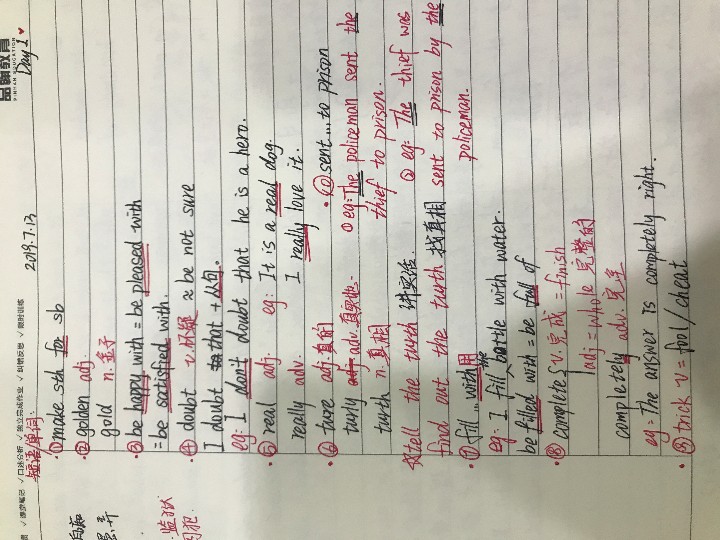 品融教育
PINIAN EDUCATION
Day 1
✓课堂笔记 ✓口述分析 ✓独立完成作业 ✓纠错反思 ✓限时训练
2019.7.13
短语/单词:
① make sth for sb
② golden adj.
gold n. 金子
③ be happy with = be pleased with
= be satisfied with.
④ doubt v. 怀疑 ≈ be not sure
I doubt that + 从句.
eg: I don't doubt that he is a hero.
⑤ real adj. eg: It is a real dog.
really adv. I really love it.
⑥ ture adj. 真的
turly adv. 真实地
turth n. 真相
tell the turth 讲实话.
find out the turth 找真相
⑦ fill...with 用
eg: I fill the bottle with water.
be filled with = be full of
⑧ complete v. 完成 = finish
adj = whole 完整的
completely adv. 完全
eg: The answer is completely right.
⑨ trick v = fool/cheat
⑩ sent...to prison
① eg: The policeman sent the
thief to prison.
② eg: The thief was
sent to prison by the
policeman.
监狱